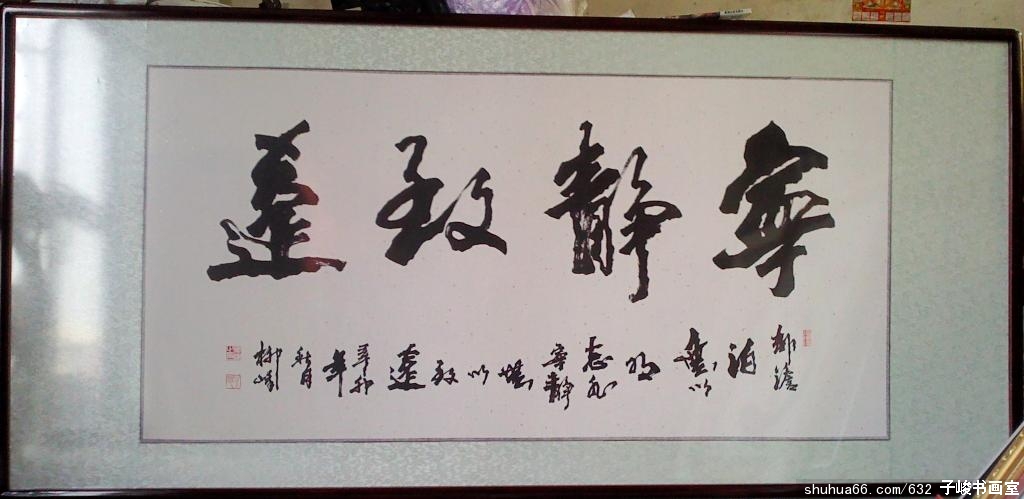 寧靜致遠
泊
無以
明
志非
寧靜
無
以
致
遠
辛卯
年
秋月
shuhua66.com/632 子峻书画室